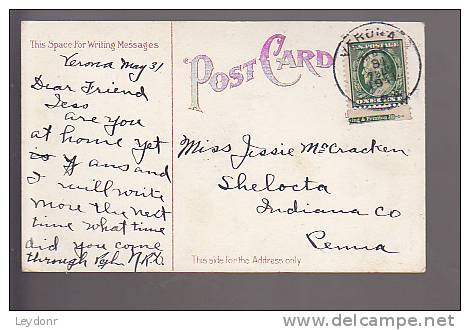 This Space For Writing Messages
POST CARD
VERONA
U.S. POSTAGE
ONE CENT
Verona May 31
Dear Friend
Jess
are you
at home yet
is y ans and
I will write
more the next
time what time
did you come
through
Miss Jessie McCracken
Shelocta
Indiana Co
Penna
This side for the Address only
Leydonr
delcampe.net